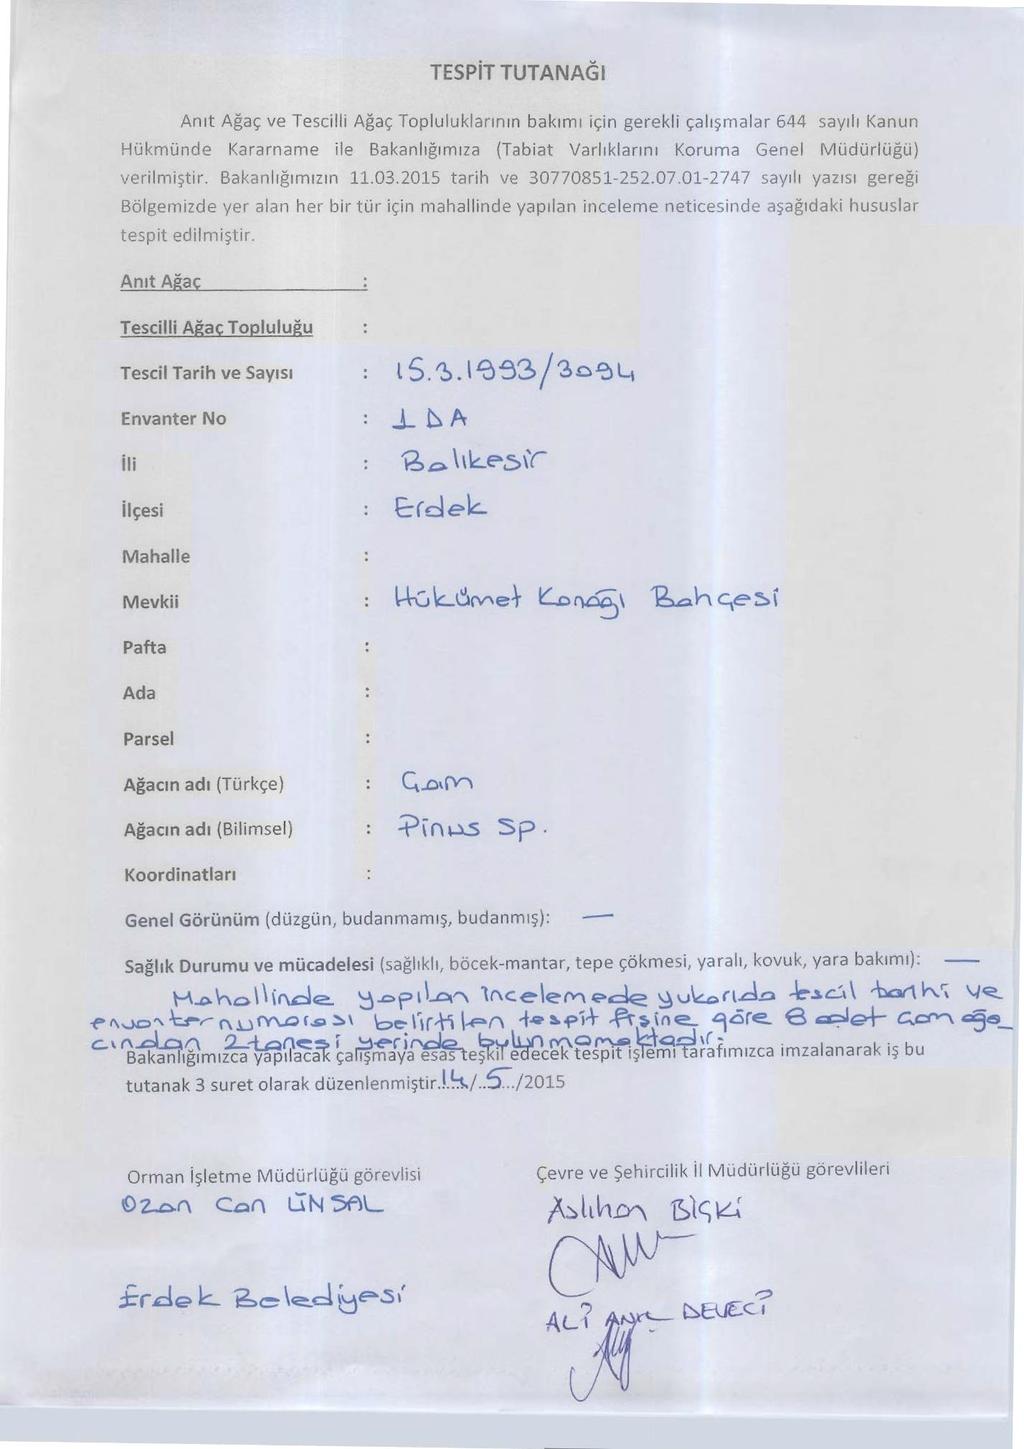 TESPİT TUTANAĞI
Anıt Ağaç ve Tescilli Ağaç Topluluklarının bakımı için gerekli çalışmalar 644 sayılı Kanun
Hükmünde Kararname ile Bakanlığımıza (Tabiat Varlıklarını Koruma Genel Müdürlüğü)
verilmiştir. Bakanlığımızın 11.03.2015 tarih ve 30770851-252.07.01-2747 sayılı yazısı gereği
Bölgemizde yer alan her bir tür için mahallinde yapılan inceleme neticesinde aşağıdaki hususlar
tespit edilmiştir.
Anıt Ağaç :
Tescilli Ağaç Topluluğu :
Tescil Tarih ve Sayısı : 15.3.1993/3094
Envanter No : 1 DA
İli : Balıkesir
İlçesi : Erdek
Mahalle :
Mevkii : Hükümet Konağı Bahçesi
Pafta :
Ada :
Parsel :
Ağacın adı (Türkçe) : Çam
Ağacın adı (Bilimsel) : Pinus Sp.
Koordinatları :
Genel Görünüm (düzgün, budanmamış, budanmış): —
Sağlık Durumu ve mücadelesi (sağlıklı, böcek-mantar, tepe çökmesi, yaralı, kovuk, yara bakımı): —
Mahallinde yapılan incelemede yukarıda tescil tarihi ve
envanter numarası belirtilen tespit fişine göre 8 adet çam ağa_
cından 2 tanesi yerinde bulunmamaktadır.
Bakanlığımızca yapılacak çalışmaya esas teşkil edecek tespit işlemi tarafımızca imzalanarak iş bu
tutanak 3 suret olarak düzenlenmiştir. 14/5/2015
Orman İşletme Müdürlüğü görevlisi
Ozan Can ÜNSAL
Çevre ve Şehircilik İl Müdürlüğü görevlileri
Aslıhan BİÇKİ
Erdek Belediyesi
ALİ ANIL DEVECİ